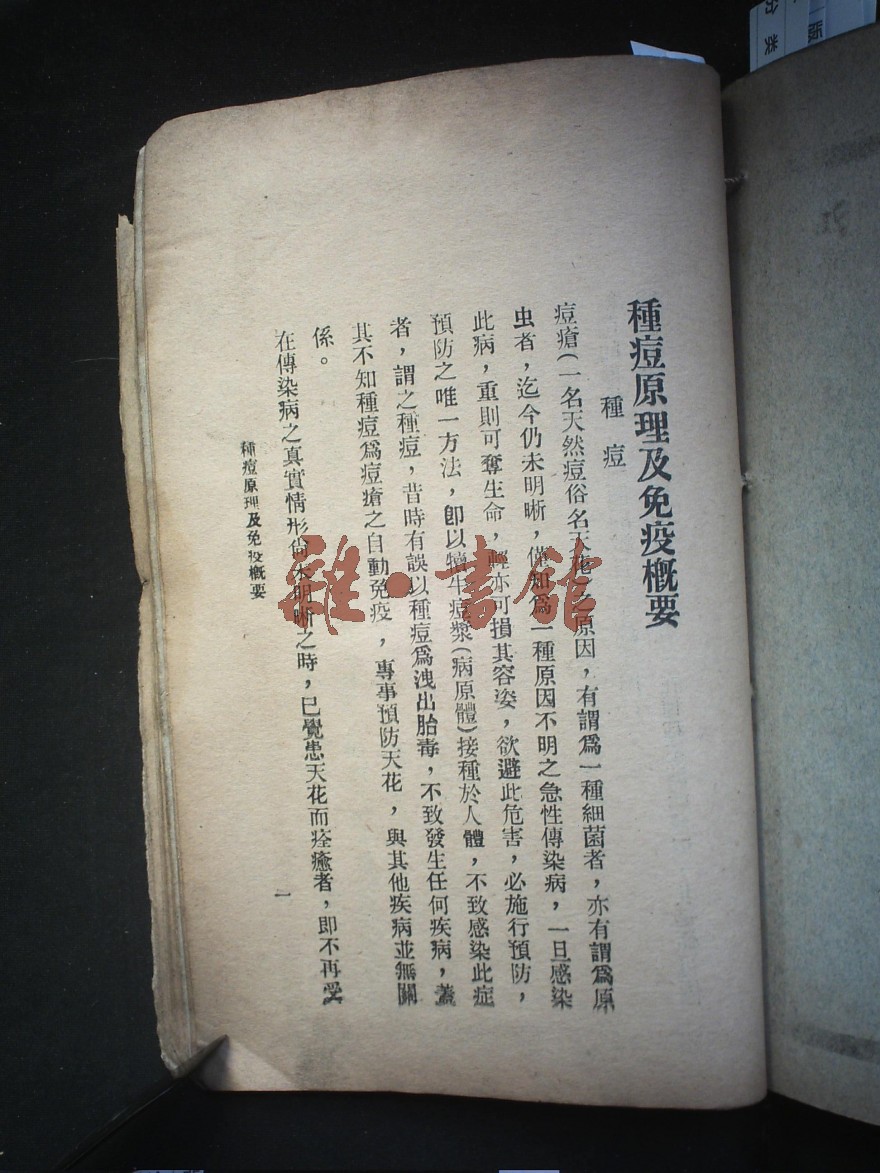 種痘原理及免疫概要
種痘
痘瘡(一名天然痘俗名天花)之原因,有謂爲一種細菌者,亦有謂爲原
虫者,迄今仍未明晰,僅知爲一種原因不明之急性傳染病,一旦感染
此病,重則可奪生命,輕亦可損其容姿,欲避此危害,必施行預防,
預防之唯一方法,卽以犢牛痘漿(病原體)接種於人體,不致感染此症
者,謂之種痘,昔時有誤以種痘爲洩出胎毒,不致發生任何疾病,蓋
其不知種痘爲痘瘡之自動免疫,專事預防天花,與其他疾病並無關
係。
在傳染病之真實情形尙未明晰之時,已覺患天花而痊癒者,卽不再受
種痘原理及免疫概要
一
雜·書館
版
分类